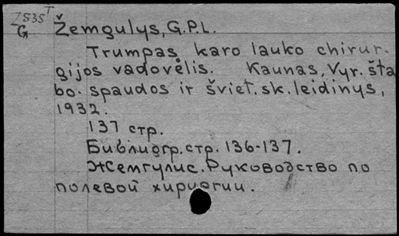 Z535T
G
Žemgulys, G.P.L.
Trumpas karo lauko chirur-
gijos vadovėlis. Kaunas, Vyr. šta
bo. spaudos ir šviet. sk. leidinys,
1932.
137 стр.
Библиогр. стр. 136-137.
Жемгулис. Руководство по
полевой хирургии.